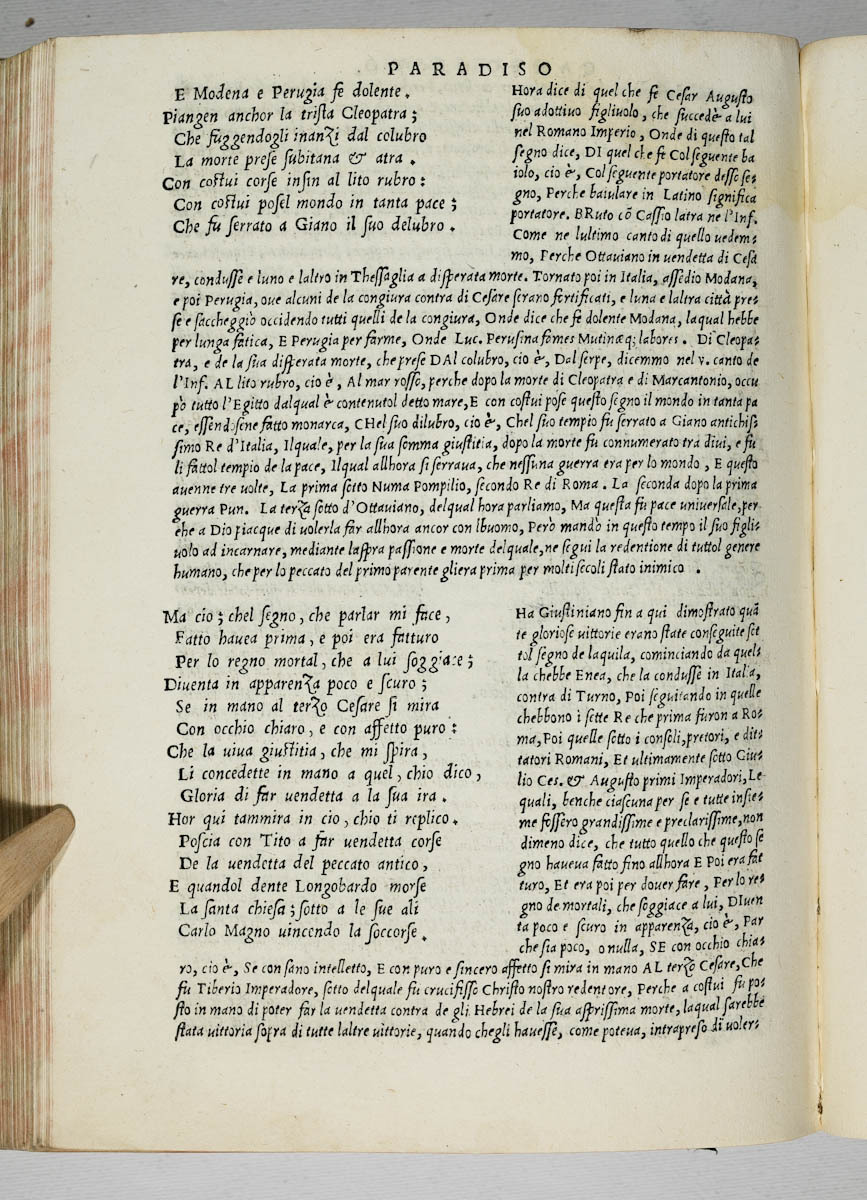 PARADISO
E Modena e Perugia fe dolente.
Piangen anchor la trista Cleopatra;
Che fuggendogli inanzi dal colubro
La morte prese subitana & atra.
Con costui corse insin al lito rubro:
Con costui posel mondo in tanta pace;
Che fu serrato a Giano il suo delubro.
Hora dice di quel che fe Cesar Augusto
suo adottivo figliuolo, che succedè a lui
nel Romano Imperio, Onde di questo tal
segno dice, DI quel che fe Col seguente ba
iolo, cio è, Col seguente portatore desso se=
gno, Perche baiulare in Latino significa
portatore. BRuto cõ Cassio latra ne l'Inf.
Come ne lultimo canto di quello uedem=
mo, Perche Ottauiano in uendetta di Cesa
re, condusse e luno e laltro in Thessaglia a disperata morte. Tornato poi in Italia, assedio Modana,
e poi Perugia, oue alcuni de la congiura contra di Cesare serano fortificati, e luna e laltra città pre=
se e saccheggiò occidendo tutti quelli de la congiura, Onde dice che fe dolente Modana, laqual hebbe
per lunga fatica, E Perugia per farme, Onde Luc. Perusina fames Mutinæq; labores. Di Cleopa=
tra, e de la sua disperata morte, che prese DAl colubro, cio è, Dal serpe, dicemmo nel v. canto de
l'Inf. AL lito rubro, cio è, Al mar rosso, perche dopo la morte di Cleopatra e di Marcantonio, occu
pò tutto l'Egitto dalqual è contenutol detto mare, E con costui pose questo segno il mondo in tanta pa
ce, essendosene fatto monarca, CHel suo dilubro, cio è, Chel suo tempio fu serrato a Giano antichis=
simo Re d'Italia, Ilquale, per la sua somma giustitia, dopo la morte fu connumerato tra diui, e fu
li fattol tempio de la pace, Ilqual allhora si serraua, che nessuna guerra era per lo mondo, E questo
auenne tre volte, La prima sotto Numa Pompilio, secondo Re di Roma. La seconda dopo la prima
guerra Pun. La terza sotto d'Ottauiano, delqual hora parliamo, Ma questa fu pace uniuersale, per
che a Dio piacque di uolerla far allhora ancor con lhuomo, Però mandò in questo tempo il suo figli=
uolo ad incarnare, mediante laspra passione e morte delquale, ne segui la redentione di tuttol genere
humano, che per lo peccato del primo parente gliera prima per molti secoli stato inimico.
Ma cio; chel segno, che parlar mi face,
Fatto hauea prima, e poi era fatturo
Per lo regno mortal, che a lui soggiace;
Diuenta in apparenza poco e scuro;
Se in mano al terzo Cesare si mira
Con occhio chiaro, e con affetto puro:
Che la uiua giustitia, che mi spira,
Li concedette in mano a quel, chio dico,
Gloria di far uendetta a la sua ira.
Hor qui tammira in cio, chio ti replico.
Poscia con Tito a far uendetta corse
De la uendetta del peccato antico,
E quandol dente Longobardo morse
La santa chiesa; sotto a le sue ali
Carlo Magno uincendo la soccorse.
Ha Giustiniano fin a qui dimostrato quã
te gloriose uittorie erano state conseguite sot
tol segno de laquila, cominciando da quel=
la chebbe Enea, che la condusse in Italia,
contra di Turno, Poi seguitando in quelle
chebbono i sette Re che prima furon a Ro=
ma, Poi quelle sotto i consoli, pretori, e dit=
tatori Romani, Et ultimamente sotto Giu=
lio Ces. & Augusto primi Imperadori, Le
quali, benche ciascuna per se e tutte insie=
me fossero grandissime e preclarissime, non
dimeno dice, che tutto quello che questo se
gno haueua fatto fino allhora E Poi era fat
turo, Et era poi per douer fare, Per lo re=
gno de mortali, che soggiace a lui, DIuen
ta poco e scuro in apparenza, cio è, Par
che sia poco, o nulla, SE con occhio chia=
ro, cio è, Se con sano intelletto, E con puro e sincero affetto si mira in mano AL terzo Cesare, Che
fu Tiberio Imperadore, sotto delquale fu crucifisso Christo nostro redentore, Perche a costui fu po=
sto in mano di poter far la uendetta contra de gli Hebrei de la sua asprissima morte, laqual sarebbe
stata uittoria sopra di tutte laltre uittorie, quando chegli hauesse, come poteua, intrapreso di uoler=